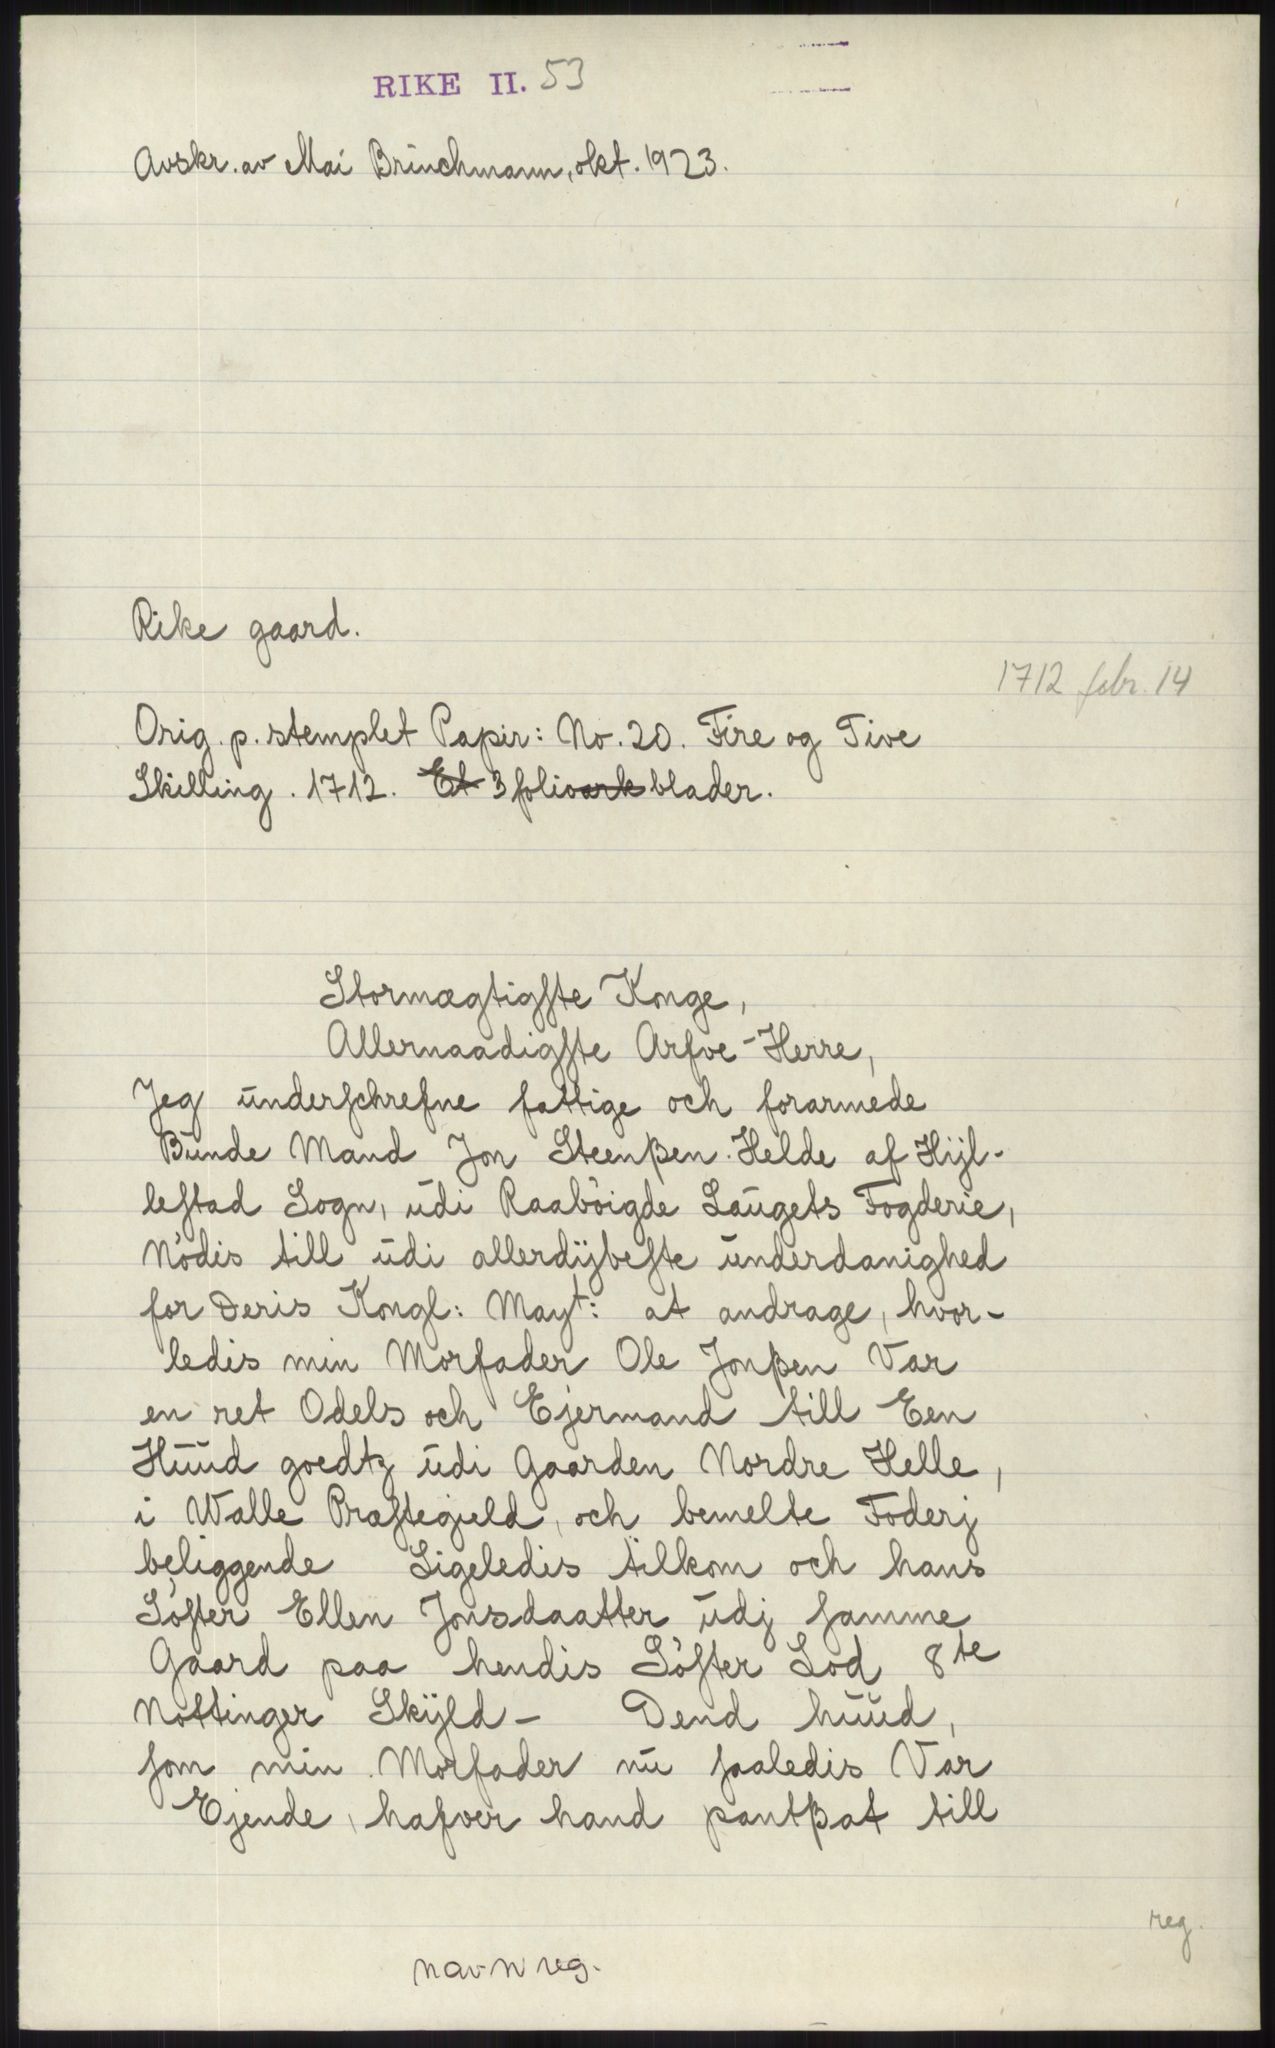 RIKE II. 53
Avskr. av Mai Brinchmann, okt. 1923.
Rike gaard.
1712 febr. 14
Orig. p. stemplet Papir: No. 20. Fire og Tive
Skilling. 1712. Et 3 folioark blader.
Stormægtigſte Konge,
Allernaadigſte Arfve-Herre,
Jeg underſchrefne fattige och forarmede
Bunde Mand Jon Steenßen Helde af Hijl-
leſtad Sogn, udi Raaböigde Laugets Fogderie,
Nödis till udi allerdijbeſte underdanighed
for Deris Kongl: Mayt: at andrage, hvor-
ledis min Morfader Ole Jonßen Var
en ret Odels och Ejermand till Een
Huud goedtz udi Gaarden Nordre Helle,
i Walle Præſtegield, och bemelte Foderj
beliggende Ligeledis tilkom och hans
Söſter Ellen Jonsdaatter udj ſamme
Gaard paa hendis Söſter Lod 8te
Nottinger Skijld- Dend huud,
ſom min Morfader nu ſaaledis Var
Ejende, hafver hand pantßat till
reg.
navn reg.